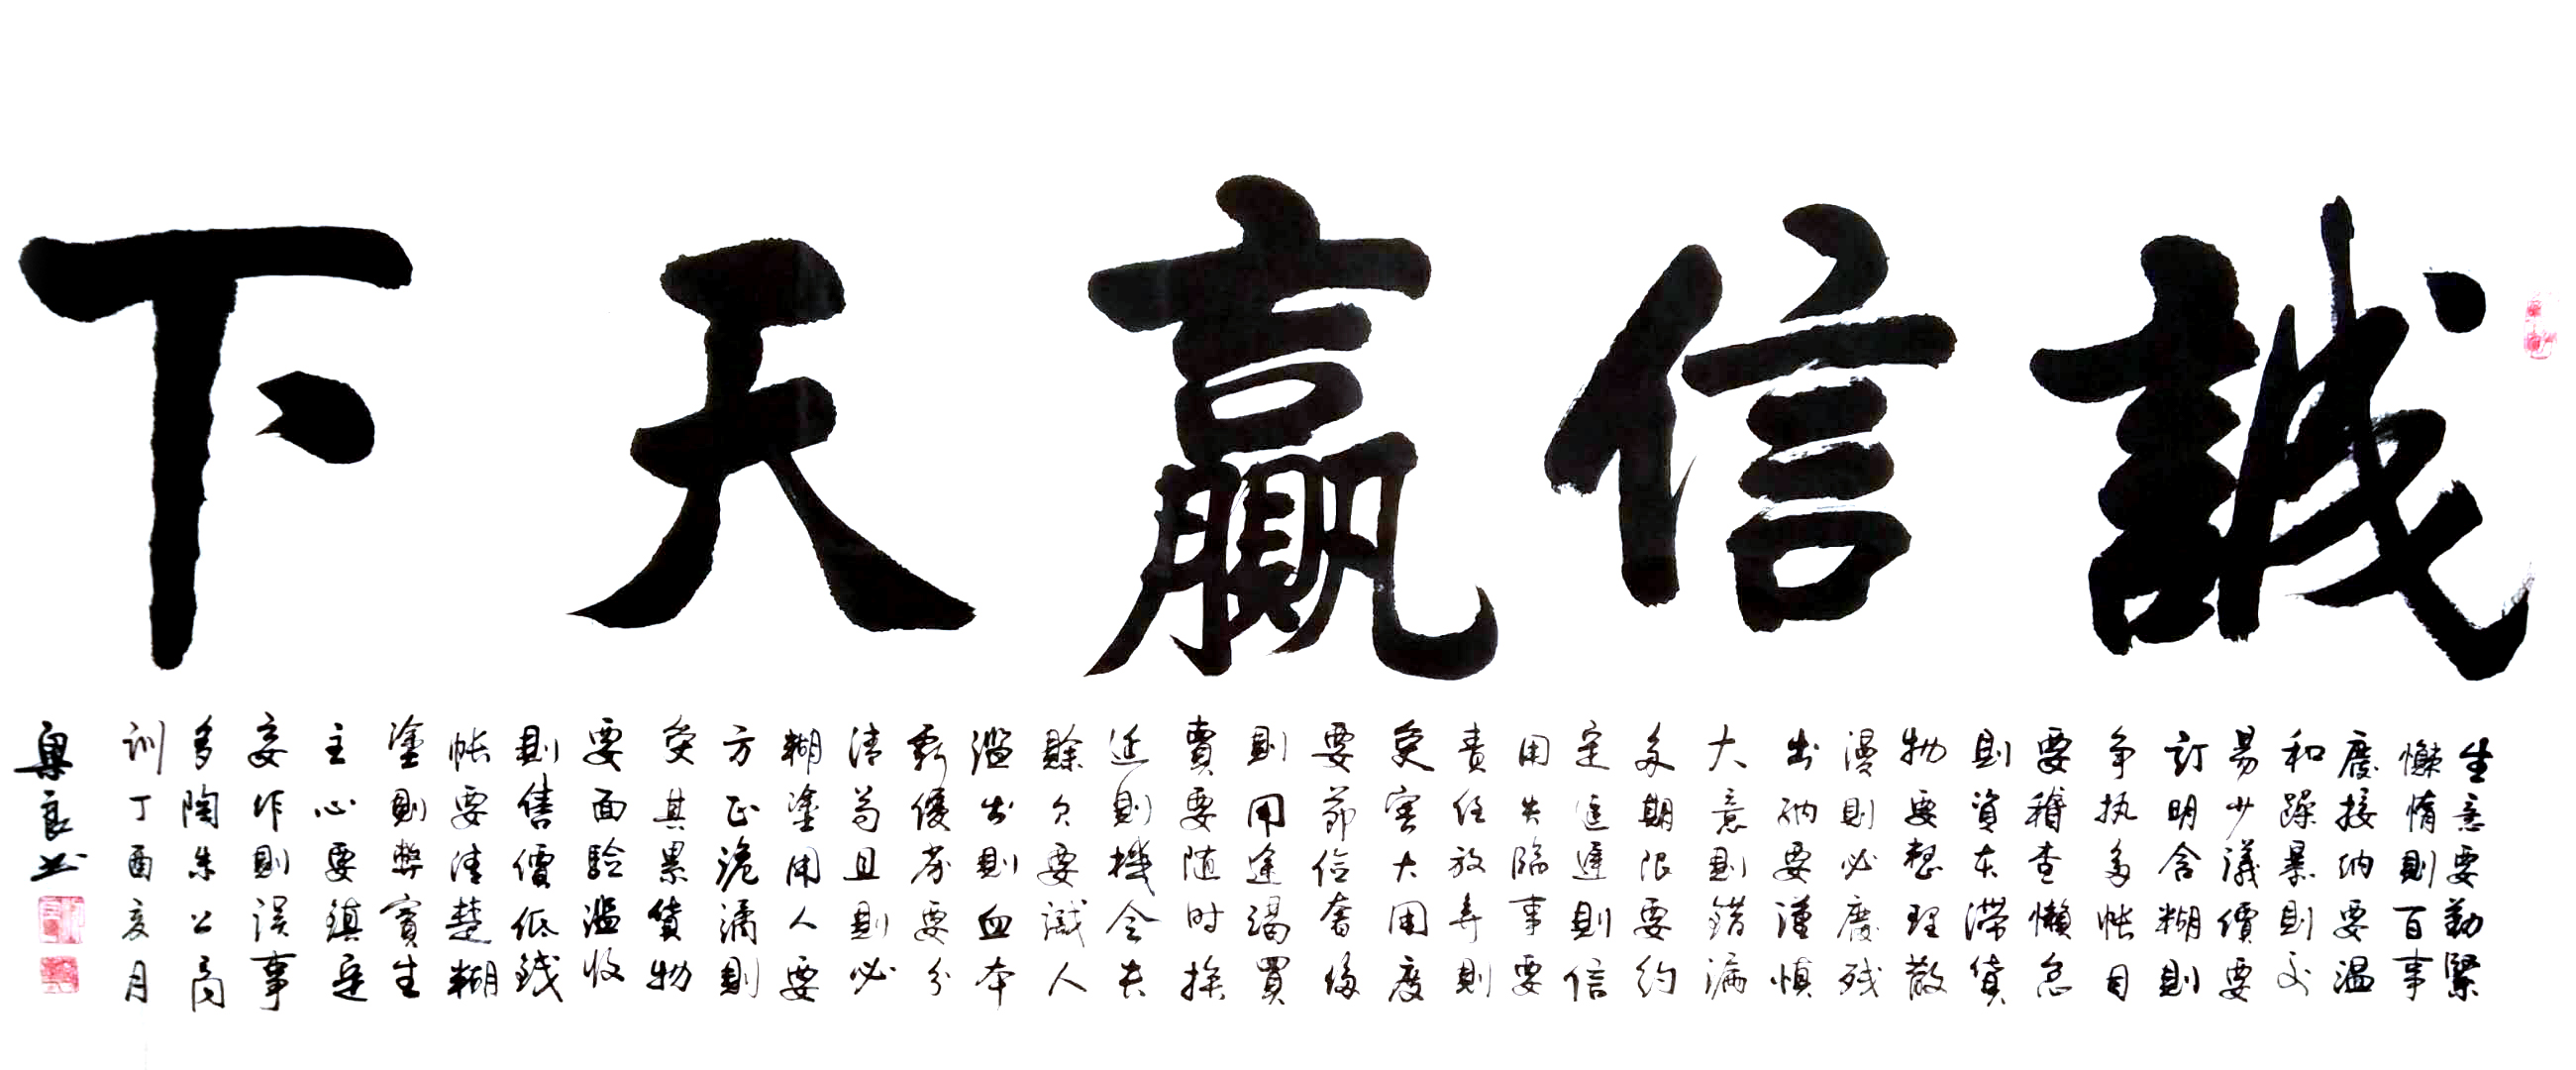 誠信贏天下
生意要勤緊
懒惰則百事
廢接纳要温
和躁暴則交
易少議價要
訂明含糊則
争执多帐目
要稽查懒怠
則資本滞貨
物要整理散
漫則必廢残
出纳要谨慎
大意則錯漏
多期限要约
定延遲則信
用失臨事要
责任放弃則
受害大用度
要節俭奢侈
則用途竭買
賣要随时挨
延則機会失
赊欠要識人
滥出則血本
虧優劣要分
清苟且則必
糊塗用人要
方正诡谲則
受其累貨物
要面驗滥收
則售價低錢
帐要清楚糊
塗則弊竇生
主心要鎮定
妄作則误事
多陶朱公商
训丁酉夏月
良书